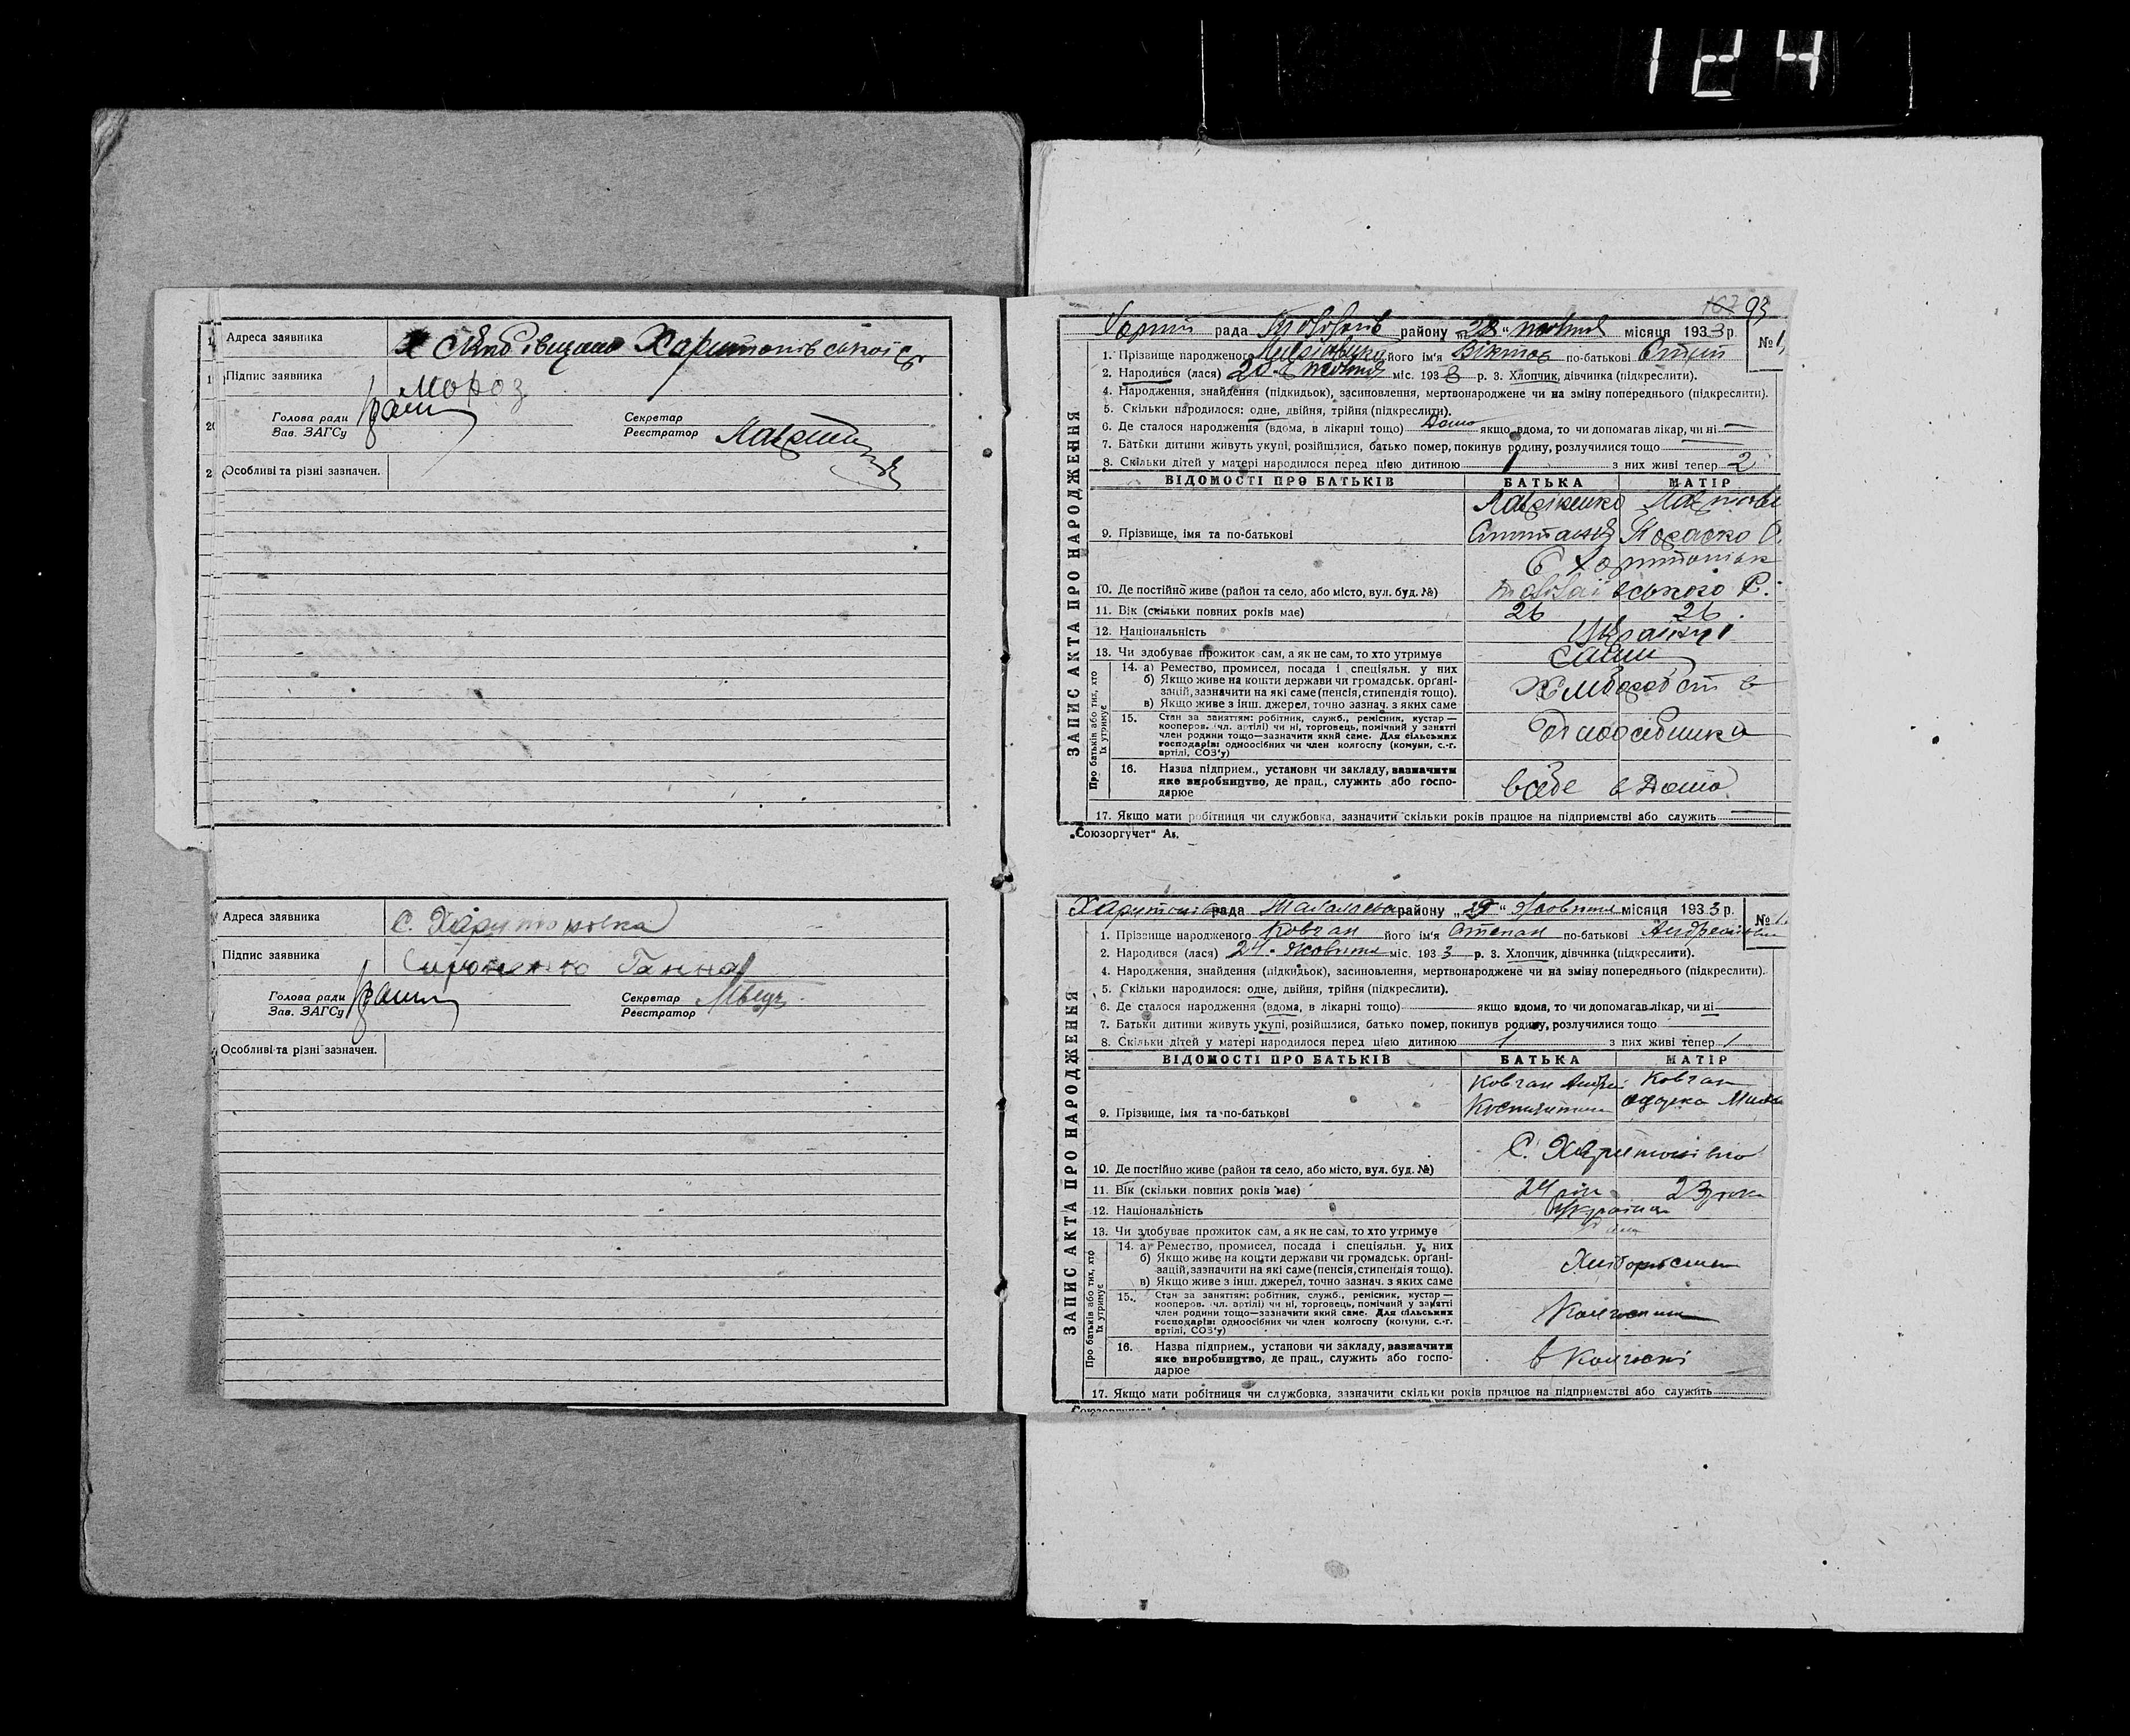 124
Адреса заявника
Харитонівської
Підпис заявника Мороз
Голова ради
Зав. ЗАГСу
Секретар
Реєстратор
Особливі та різні зазначен.
Адреса заявника С. Харитоновка
Підпис заявника Ганна
Голова ради
Зав. ЗАГСу
Секретар
Реєстратор
Особливі та різні зазначен.
93
ЗАПИС АКТА ПРО НАРОДЖЕННЯ
рада району „28“ жовтня місяця 1933 р. №
1. Прізвище народженого його ім'я Віктор по-батькові
2. Народився (лася) 20 жовтня міс. 1933 р. 3. Хлопчик, дівчинка (підкреслити).
4. Народження, знайдення (підкидьок), засиновлення, мертвонароджене чи на зміну попереднього (підкреслити).
5. Скільки народилося: одне, двійня, трійня (підкреслити).
6. Де сталося народження (вдома, в лікарні тощо) Дома якщо вдома, то чи допомагав лікар, чи ні
7. Батьки дитини живуть укупі, розійшлися, батько помер, покинув родину, розлучилися тощо
8. Скільки дітей у матері народилося перед цією дитиною 1 з них живі тепер 2
ВІДОМОСТІ ПРО БАТЬКІВ БАТЬКА МАТІР
9. Прізвище, імя та по-батькові
10. Де постійно живе (район та село, або місто, вул. буд. №)
11. Вік (скільки повних років має) 26 26
12. Національність Українці
13. Чи здобуває прожиток сам, а як не сам, то хто утримує сами
Про батьків або тих, хто їх утримує
14. а) Ремество, промисел, посада і спеціяльн. у них
б) Якщо живе на кошти держави чи громадськ. органі-
зацій, зазначити на які саме (пенсія, стипендія тощо).
в) Якщо живе з інш. джерел, точно зазнач. з яких саме
15. Стан за заняттям: робітник, служб., ремісник, кустар—
кооперов. (чл. артілі) чи ні, торговець, помічний у занятті
член родини тощо—зазначити який саме. Для сільських
господарів: одноосібних чи член колгоспу (комуни, с.-г.
артілі, СОЗ'у)
16. Назва підприєм., установи чи закладу, зазначити
яке виробництво, де прац., служить або госпо-
дарює
17. Якщо мати робітниця чи службовка, зазначити скільки років працює на підприємстві або служить
„Союзоргучет“
ЗАПИС АКТА ПРО НАРОДЖЕННЯ
рада району „29“ Жовтня місяця 1933 р. №
1. Прізвище народженого Ковган його ім'я Степан по-батькові Андреійович
2. Народився (лася) 24 Жовтня міс. 1933 р. 3. Хлопчик, дівчинка (підкреслити).
4. Народження, знайдення (підкидьок), засиновлення, мертвонароджене чи на зміну попереднього (підкреслити).
5. Скільки народилося: одне, двійня, трійня (підкреслити).
6. Де сталося народження (вдома, в лікарні тощо) якщо вдома, то чи допомагав лікар, чи ні
7. Батьки дитини живуть укупі, розійшлися, батько помер, покинув родину, розлучилися тощо
8. Скільки дітей у матері народилося перед цією дитиною 1 з них живі тепер 1
ВІДОМОСТІ ПРО БАТЬКІВ БАТЬКА МАТІР
Ковган Ковган
9. Прізвище, імя та по-батькові
10. Де постійно живе (район та село, або місто, вул. буд. №) С.
11. Вік (скільки повних років має) 24 23
12. Національність
13. Чи здобуває прожиток сам, а як не сам, то хто утримує
Про батьків або тих, хто їх утримує
14. а) Ремество, промисел, посада і спеціяльн. у них
б) Якщо живе на кошти держави чи громадськ. органі-
зацій, зазначити на які саме (пенсія, стипендія тощо).
в) Якщо живе з інш. джерел, точно зазнач. з яких саме
15. Стан за заняттям: робітник, служб., ремісник, кустар—
кооперов. (чл. артілі) чи ні, торговець, помічний у занятті
член родини тощо—зазначити який саме. Для сільських
господарів: одноосібних чи член колгоспу (комуни, с.-г.
артілі, СОЗ'у)
16. Назва підприєм., установи чи закладу, зазначити
яке виробництво, де прац., служить або госпо-
дарює
17. Якщо мати робітниця чи службовка, зазначити скільки років працює на підприємстві або служить